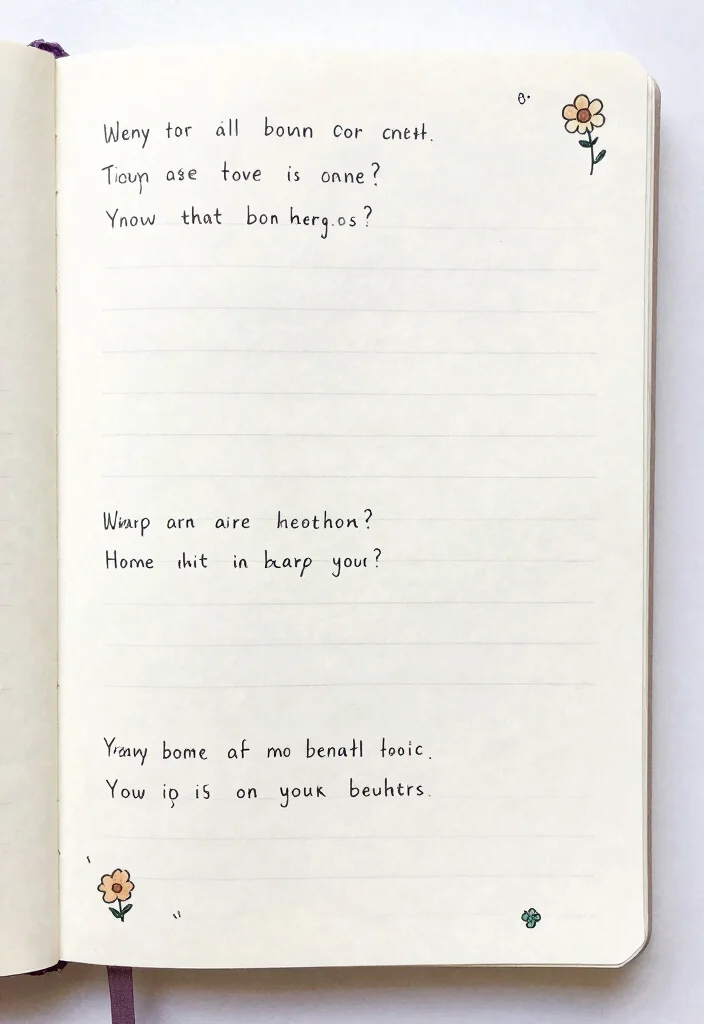 Weny tor all boun cor cnett.
Tioyp ase tove is onne?
Ynow that bon herg.os?
arn aire heothon?
Home in barp your?
bome af mo benatl tooic.
Yow ip is on youk beuhtrs.